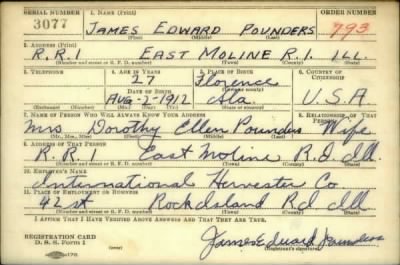 SERIAL NUMBER 1. NAME (Print) ORDER NUMBER
3077 JAMES EDWARD POUNDERS 793
(First) (Middle) (Last)
2. ADDRESS (Print)
R.R.1 EAST MOLINE R.I. ILL.
(Number and street or R. F. D. number) (Town) (County) (State)
3. TELEPHONE 4. AGE IN YEARS 5. PLACE OF BIRTH 6. COUNTRY OF CITIZENSHIP
27 Florence
DATE OF BIRTH (Town or county)
AUG-2-1912 Ala. U.S.A.
(Exchange) (Number) (Mo.) (Day) (Yr.) (State or country)
7. NAME OF PERSON WHO WILL ALWAYS KNOW YOUR ADDRESS 8. RELATIONSHIP OF THAT PERSON
Mrs Dorothy Ellen Pounders Wife
(Mr., Mrs., Miss) (First) (Middle) (Last)
9. ADDRESS OF THAT PERSON
R.R.1 East Moline R.I. Ill.
(Number and street or R. F. D. number) (Town) (County) (State)
10. EMPLOYER'S NAME
International Harvester Co
11. PLACE OF EMPLOYMENT OR BUSINESS
42 st Rock Island R.I. Ill
(Number and street or R. F. D. number) (Town) (County) (State)
I AFFIRM THAT I HAVE VERIFIED ABOVE ANSWERS AND THAT THEY ARE TRUE.
REGISTRATION CARD
D. S. S. Form 1 James Edward Pounders
(Registrant's signature)